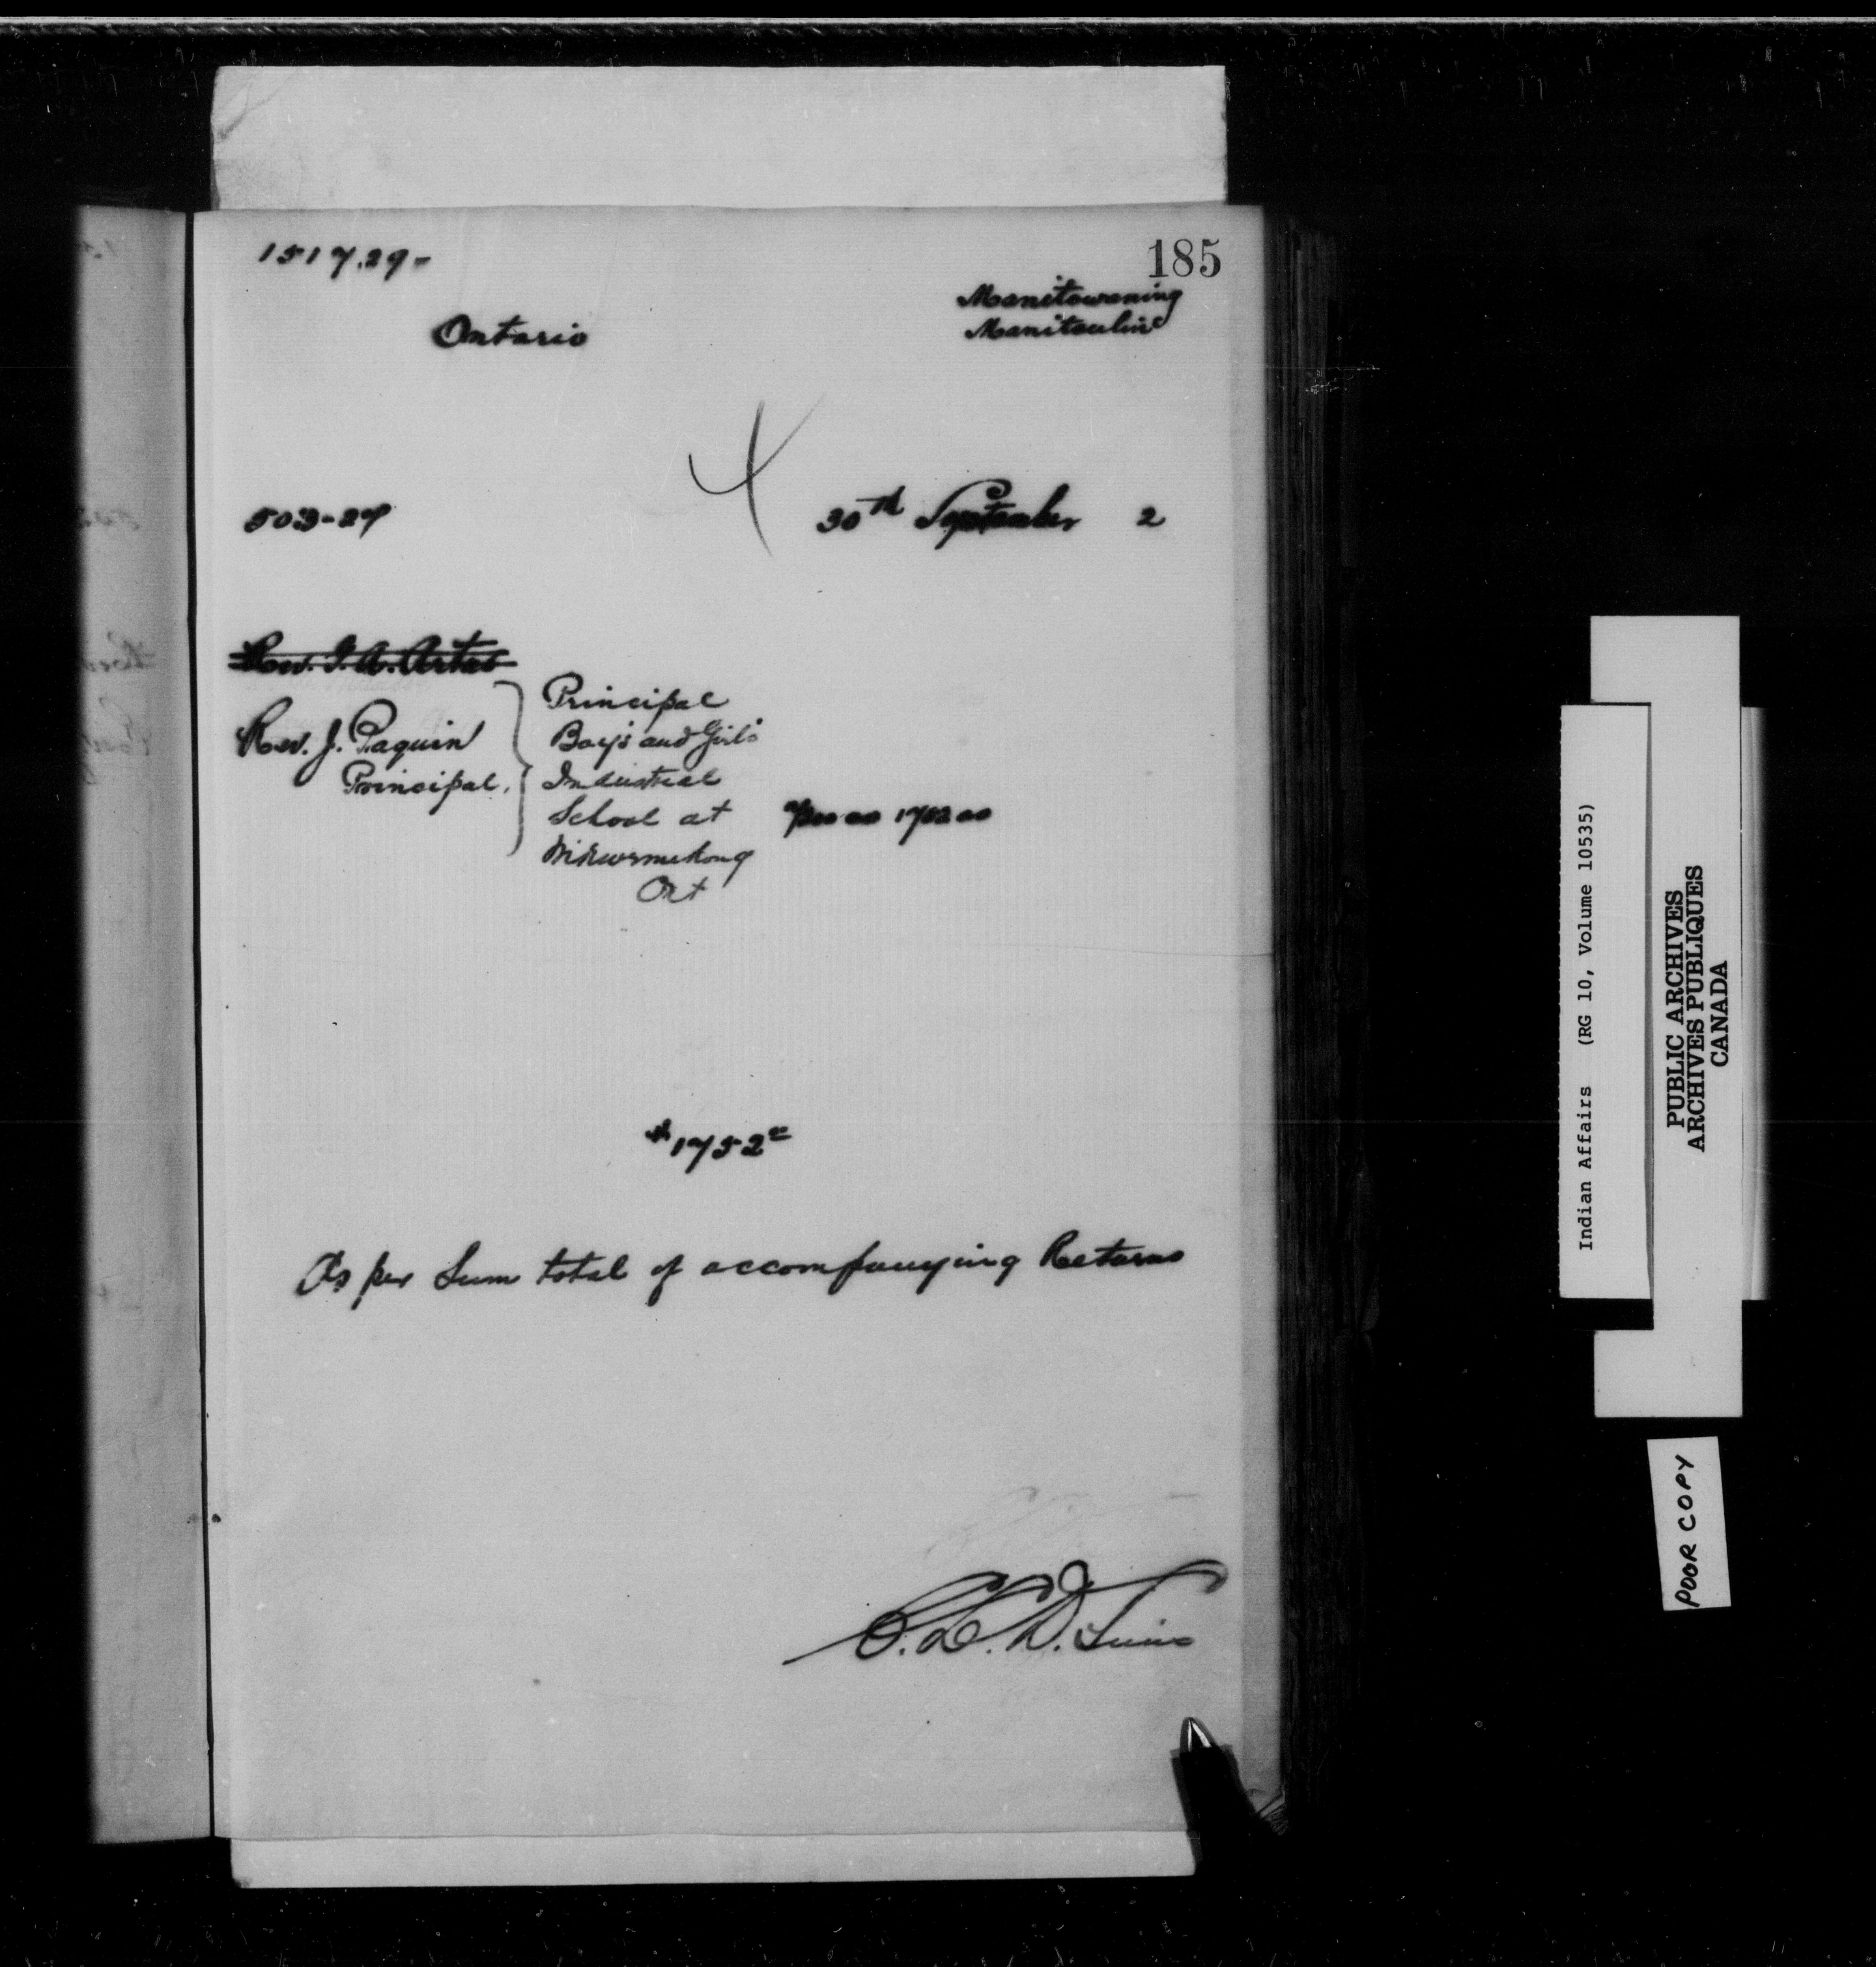 185
1517.29-
Manitowaning
Manitoulin
Ontario
503-27
30th September 2
Rev. J. Paquin
Principal.
Principal
Boys and Girls
Industrial
School at
Wikwemikong
Ont
1752 00
$1752 00
As per Sum total of accompanying Returns
C.L.D. Sims
Indian Affairs (RG 10, Volume 10535)
PUBLIC ARCHIVES
ARCHIVES PUBLIQUES
CANADA
POOR COPY